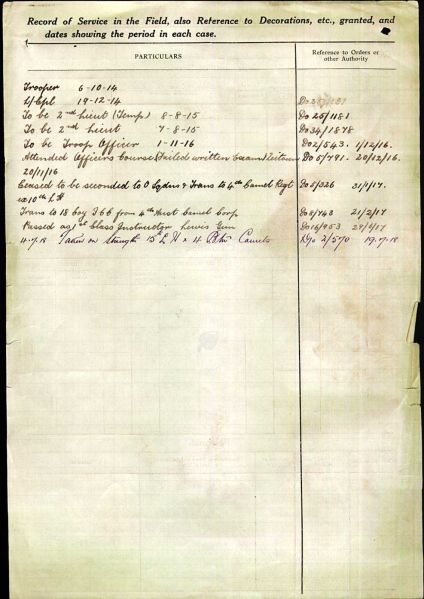 Record of Service in the Field, also Reference to Decorations, etc., granted, and
dates showing the period in each case.
PARTICULARS
Reference to Orders or
other Authority
Trooper 6-10-14
L/Cpl 19-12-14 Do
To be 2nd Lieut (Temp) 8-8-15 Do 25/1181
To be 2nd Lieut 7-8-15 Do 34/1878
To be Troop Officer 1-11-16 Do 2/543. 1/12/16.
Attended Officers Course (Failed written Exam) Zeitoun Do 5/791. 20/12/16.
20/11/16
Ceased to be seconded to O Sqdn & Trans to 4th Camel Regt Do 5/326 31/1/17.
10th L H
Trans to 18 Coy ICC from 4th Camel Corp Do 8/743 21/2/17
Passed as 1st Class Instructor Lewis Gun Do 16/953 29/9/17
Taken on Strength 15 L H 4 Camels 2/570 19.7.18